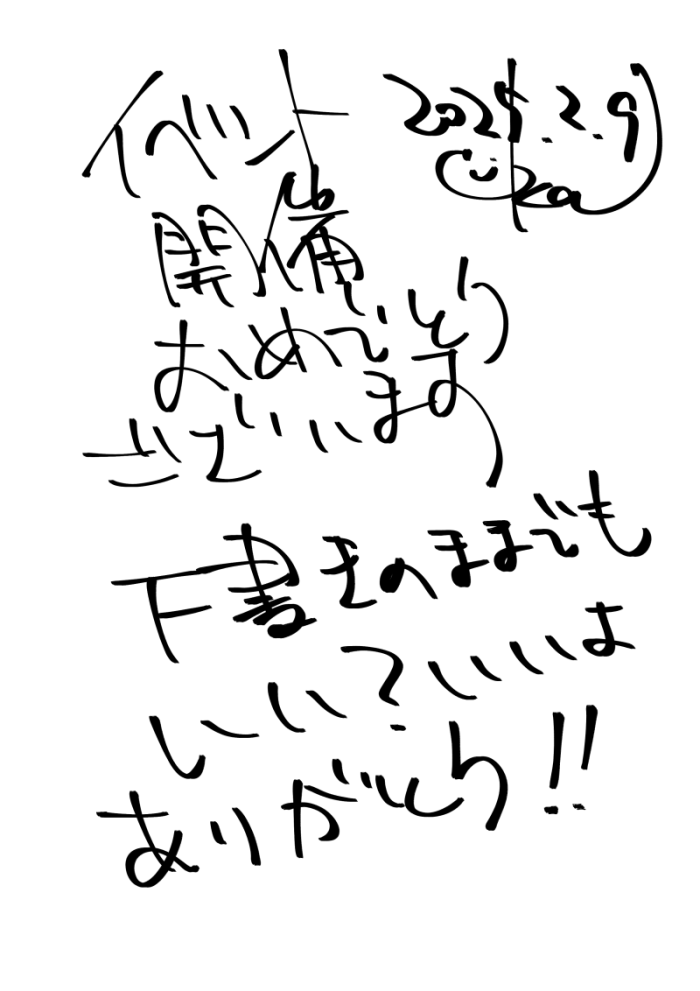 イベント
2025.2.9
開催
おめでとう
ございます
下書きのままでも
いい?いいよ
ありがとう!!